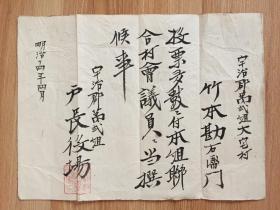 宇治郡第弐組大宅村
竹本勘右衛門
投票多数ニ付本組聯
合村會議員ニ当撰
候事
宇治郡第弐組
戸長役場
明治十四年四月